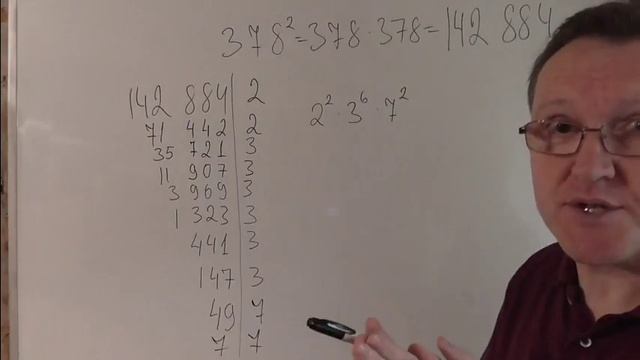 378² = 378 · 378 = 142 884
142 884 | 2
71 442 | 2
35 721 | 3
11 907 | 3
3 969 | 3
1 323 | 3
441 | 3
147 | 3
49 | 7
7 | 7
2² · 3⁶ · 7²